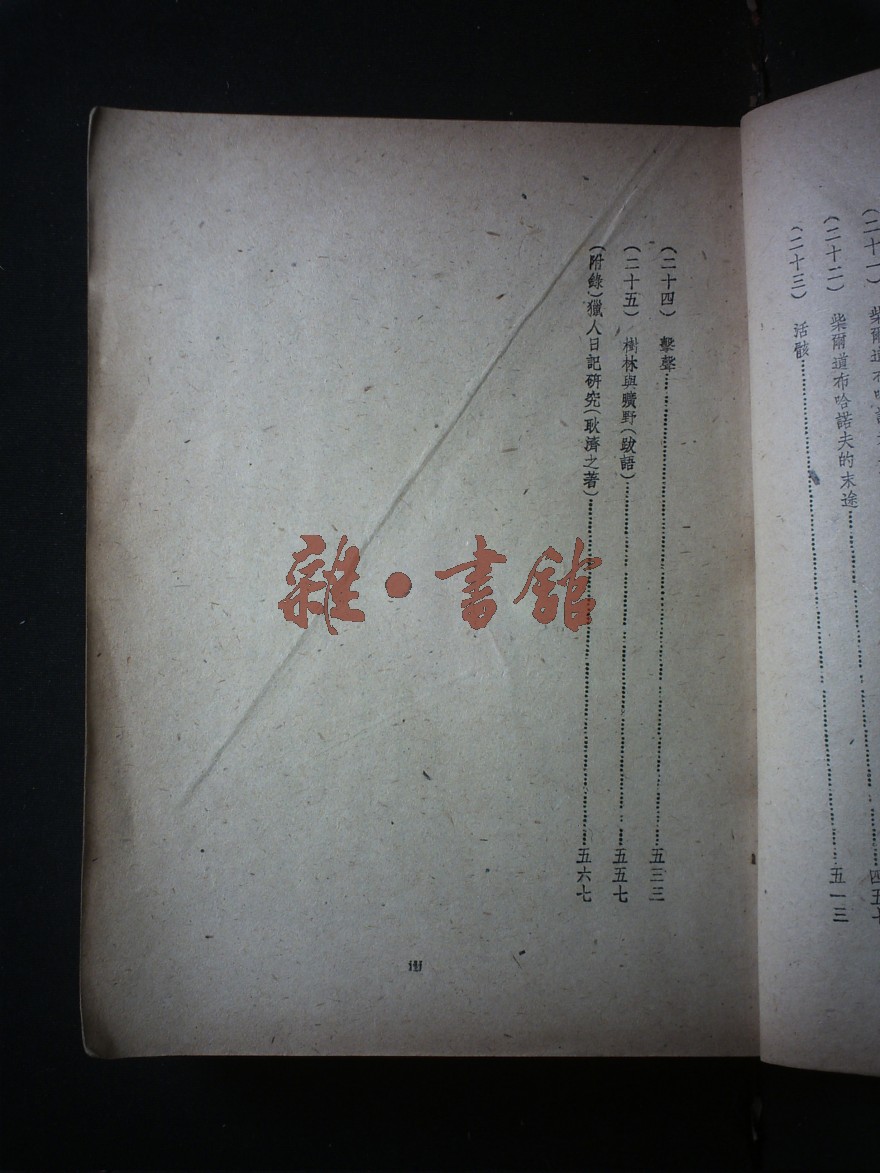 (二十一) 柴爾道布哈
(二十二) 柴爾道布哈諾夫的末途……四五
(二十三) 活骸……五一三
(二十四) 擊聲……五三三
(二十五) 樹林與曠野(跋語)……五五七
(附錄)獵人日記研究(耿濟之著)……五六七
雜·書館